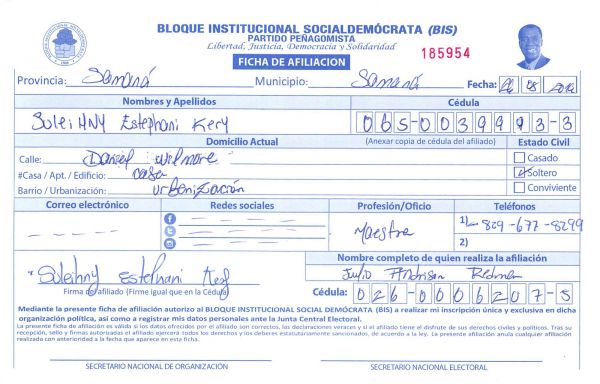 BLOQUE INSTITUCIONAL SOCIALDEMÓCRATA (BIS)
PARTIDO PEÑAGOMISTA
Libertad, Justicia, Democracia y Solidaridad
185954
FICHA DE AFILIACION
Provincia: Samaná Municipio: Samaná Fecha: 08
Nombres y Apellidos Cédula
SuleiHNY Estephani Kery 065-0039993-3
Domicilio Actual (Anexar copia de cédula del afiliado) Estado Civil
Calle: Daniel wilmore Casado
#Casa / Apt. / Edificio: casa Soltero
Barrio / Urbanización: urbenización Conviviente
Correo electrónico Redes sociales Profesión/Oficio Teléfonos
Maestra 1) 829-677-8299
2)
Nombre completo de quien realiza la afiliación
Suleihny Estephani Julio
Firma del afiliado (Firme igual que en la Cédula) Cédula: 026-0006207-5
Mediante la presente ficha de afiliación autorizo al BLOQUE INSTITUCIONAL SOCIAL DEMÓCRATA (BIS) a realizar mi inscripción única y exclusiva en dicha
organización política, así como a registrar mis datos personales ante la Junta Central Electoral.
La presente ficha de afiliación es válida si los datos ofrecidos por el afiliado son correctos, las declaraciones veraces y si el afiliado tiene el disfrute de sus derechos civiles y políticos. Tras su
recepción, sello y firmas autorizadas el afiliado ejercerá todos los derechos y los deberes estatutariamente sancionados, de acuerdo a la ley. La presente afiliación anula cualquier afiliación
realizada con anterioridad a la fecha que aparece en esta ficha.
SECRETARIO NACIONAL DE ORGANIZACIÓN SECRETARIO NACIONAL ELECTORAL